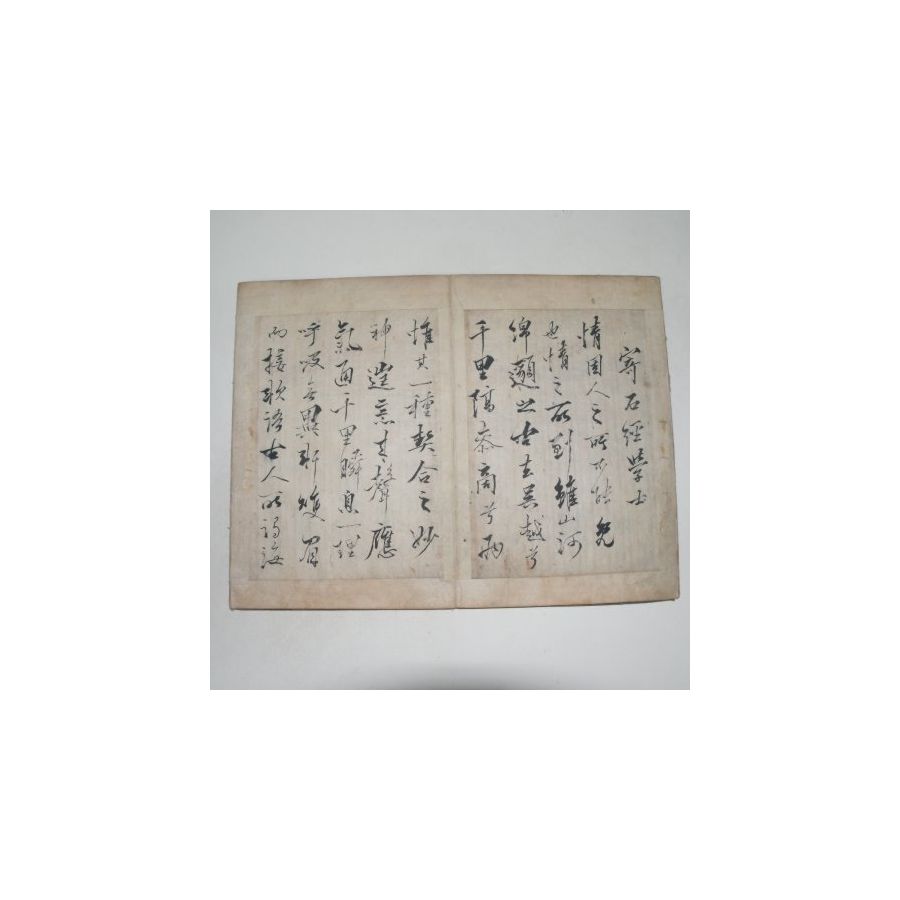 寄石經學士
情固人之所不能免
也情之所到雖山河
綿邈此古吳越兮
千里隔參商兮
惟其一種契合之妙
神遙意聲應
氣通千里瞬息一理
呼吸無異軒雙眉
而接歡語古人所謂海